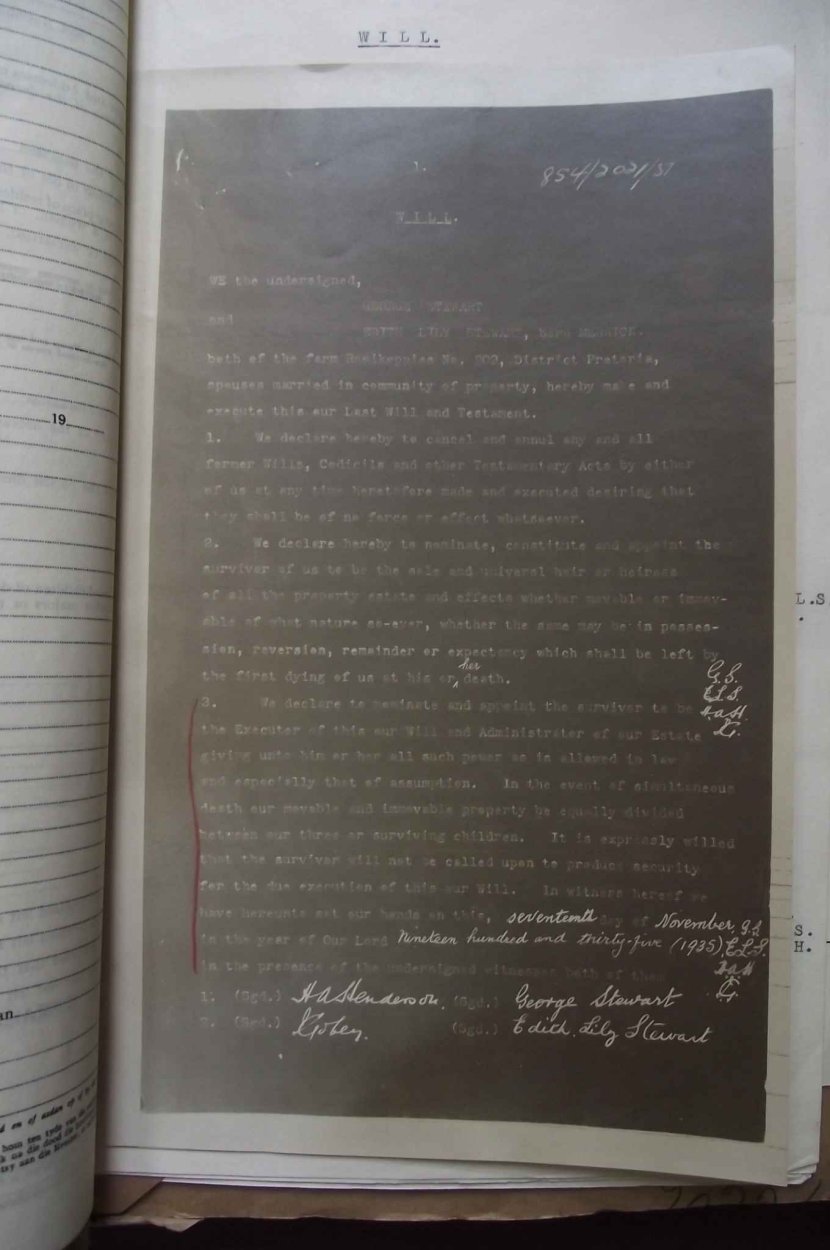 W I L L.
1.
854/2021/37
W I L L.
WE the undersigned,
GEORGE STEWART
and
EDITH LILY STEWART, born MERRICK.
both of the farm No. 902, District Pretoria,
spouses married in community of property, hereby make and
execute this our Last Will and Testament.
1. We declare hereby to cancel and annul any and all
former Wills, Codicils and other Testamentary Acts by either
of us at any time heretofore made and executed desiring that
they shall be of no force or effect whatsoever.
2. We declare hereby to nominate, constitute and appoint the
survivor of us to be the sole and universal heir or heiress
of all the property estate and effects whether movable or immov-
able of what nature so-ever, whether the same may be in posses-
L.S
sion, reversion, remainder or expectancy which shall be left by
her
the first dying of us at his or ‸ death.
G.S.
E.L.S.
3. We declare to nominate and appoint the survivor to be
H.a.H.
the Executor of this our Will and Administrator of our Estate
giving unto him or her all such power as is allowed in law
and especially that of assumption. In the event of simultaneous
death our movable and immovable property be equally divided
between our three or surviving children. It is expressly willed
that the survivor will not be called upon to produce security
for the due execution of this our Will. In witness hereof we
have hereunto set our hands on this, seventeenth day of November G.S
in the year of Our Lord Nineteen hundred and thirty-five (1935) E.L.S.
H.a.H
in the presence of the undersigned witnesses both of them
1. (Sgd.) H A Henderson. (Sgd.) George Stewart
2. (Sgd.) (Sgd.) Edith Lily Stewart
S.
H.
19
an